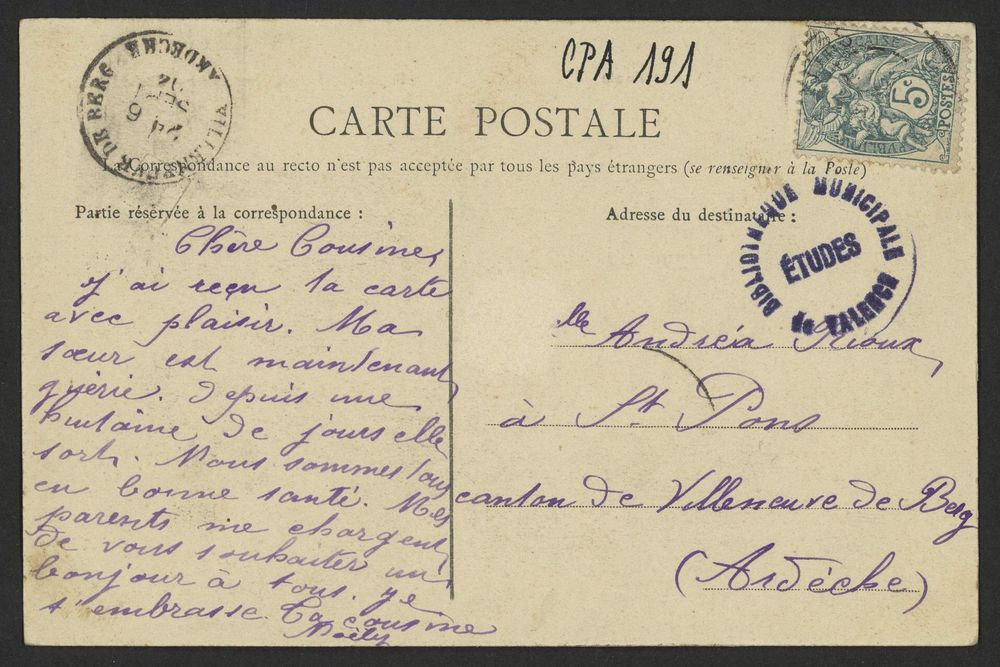 CPA 191
CARTE POSTALE
La Correspondance au recto n'est pas acceptée par tous les pays étrangers (se renseigner à la Poste)
Partie réservée à la correspondance :
Chère Cousine,
J'ai reçu ta carte
avec plaisir. Ma
sœur est maintenant
guérie. Depuis une
huitaine de jours elle
sort. Nous sommes tous
en bonne santé. Mes
parents me chargent
de vous souhaiter un
bonjour à tous. Je
t'embrasse. Ta cousine
Adresse du destinataire :
lle Andréa Rioux
à St Pons
canton de Villeneuve de Berg
(Ardèche)
BIBLIOTHEQUE MUNICIPALE
ÉTUDES
de VALENCE
VILLENEUVE DE BERG ARDECHE
5c
POSTES